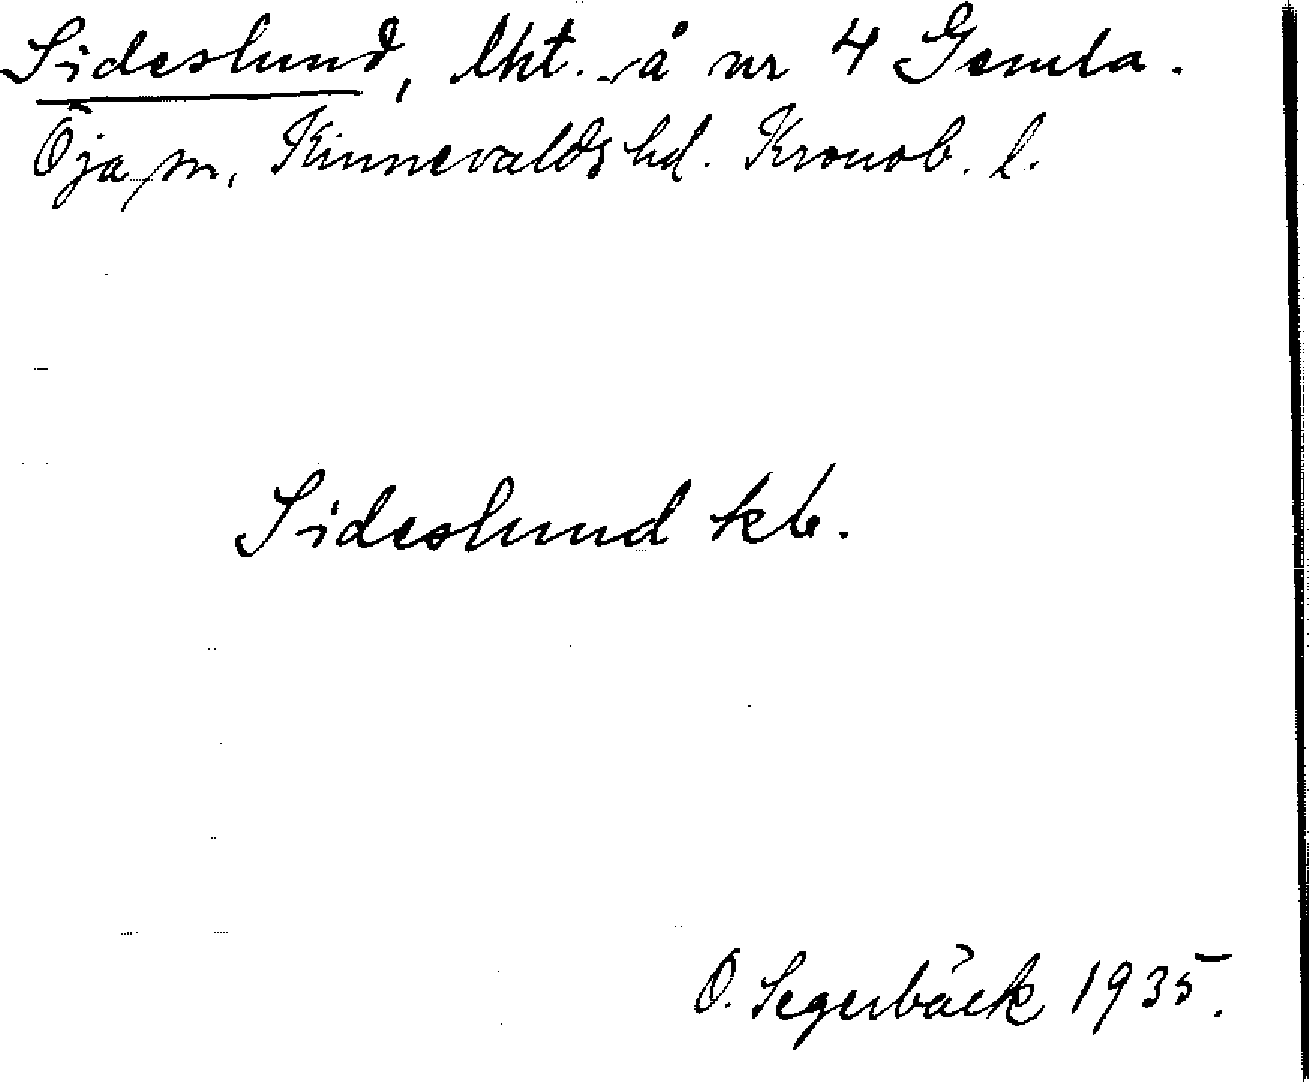 Sideslund, lht. å nr 4 Gemla.
Öja sn, Kinnevalds hd. Kronob. l.
Sideslund kb.
O. Segerbäck 1935.